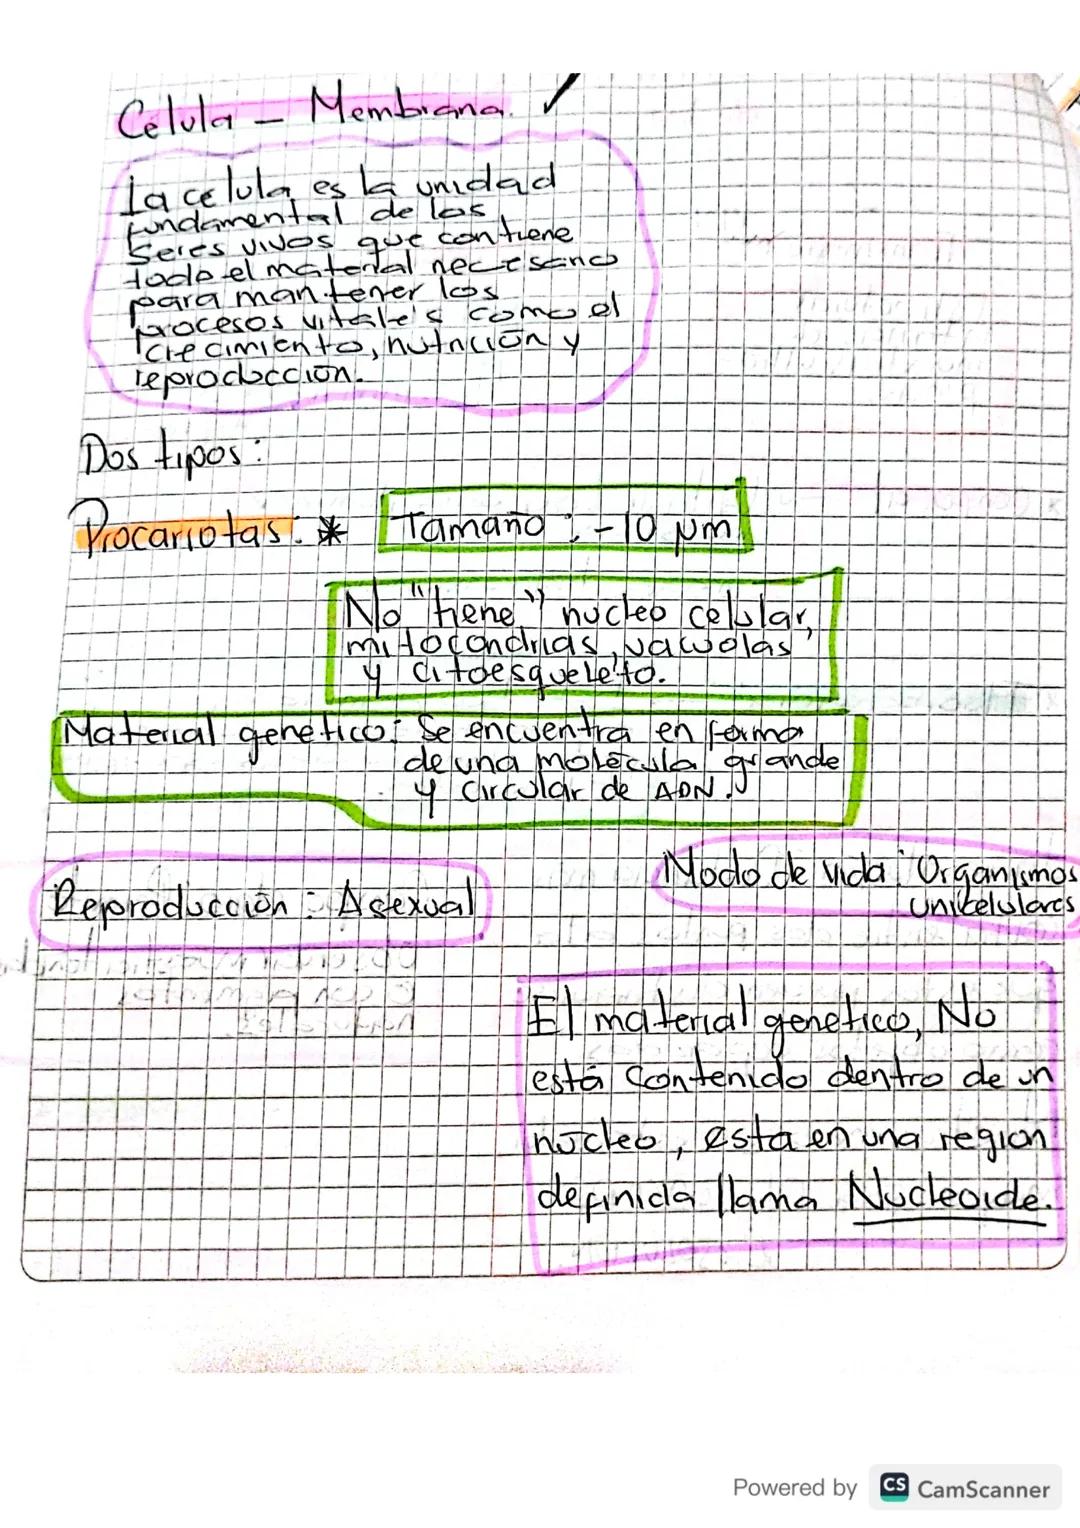 Celula - Membrana. ✓
La celula es la unidad
fundamental de los
seres vivos que contiene
todo el material necesario
para mantener los
procesos vitales como el
crecimiento, nutrición y
reproducción.
Dos tipos:
Procariotas: * Tamaño : -10 µm
No "tiene" nucleo celular,
mitocondrias, vacuolas
y citoesqueleto.
Material genetico: Se encuentra en forma
de una molécula grande
y circular de ADN.
Modo de vida: Organismos
unicelulares
Reproducción: Asexual
El material genetico, No
está contenido dentro de un
núcleo, esta en una region
definida llama Nucleoide.
Powered by CS CamScanner